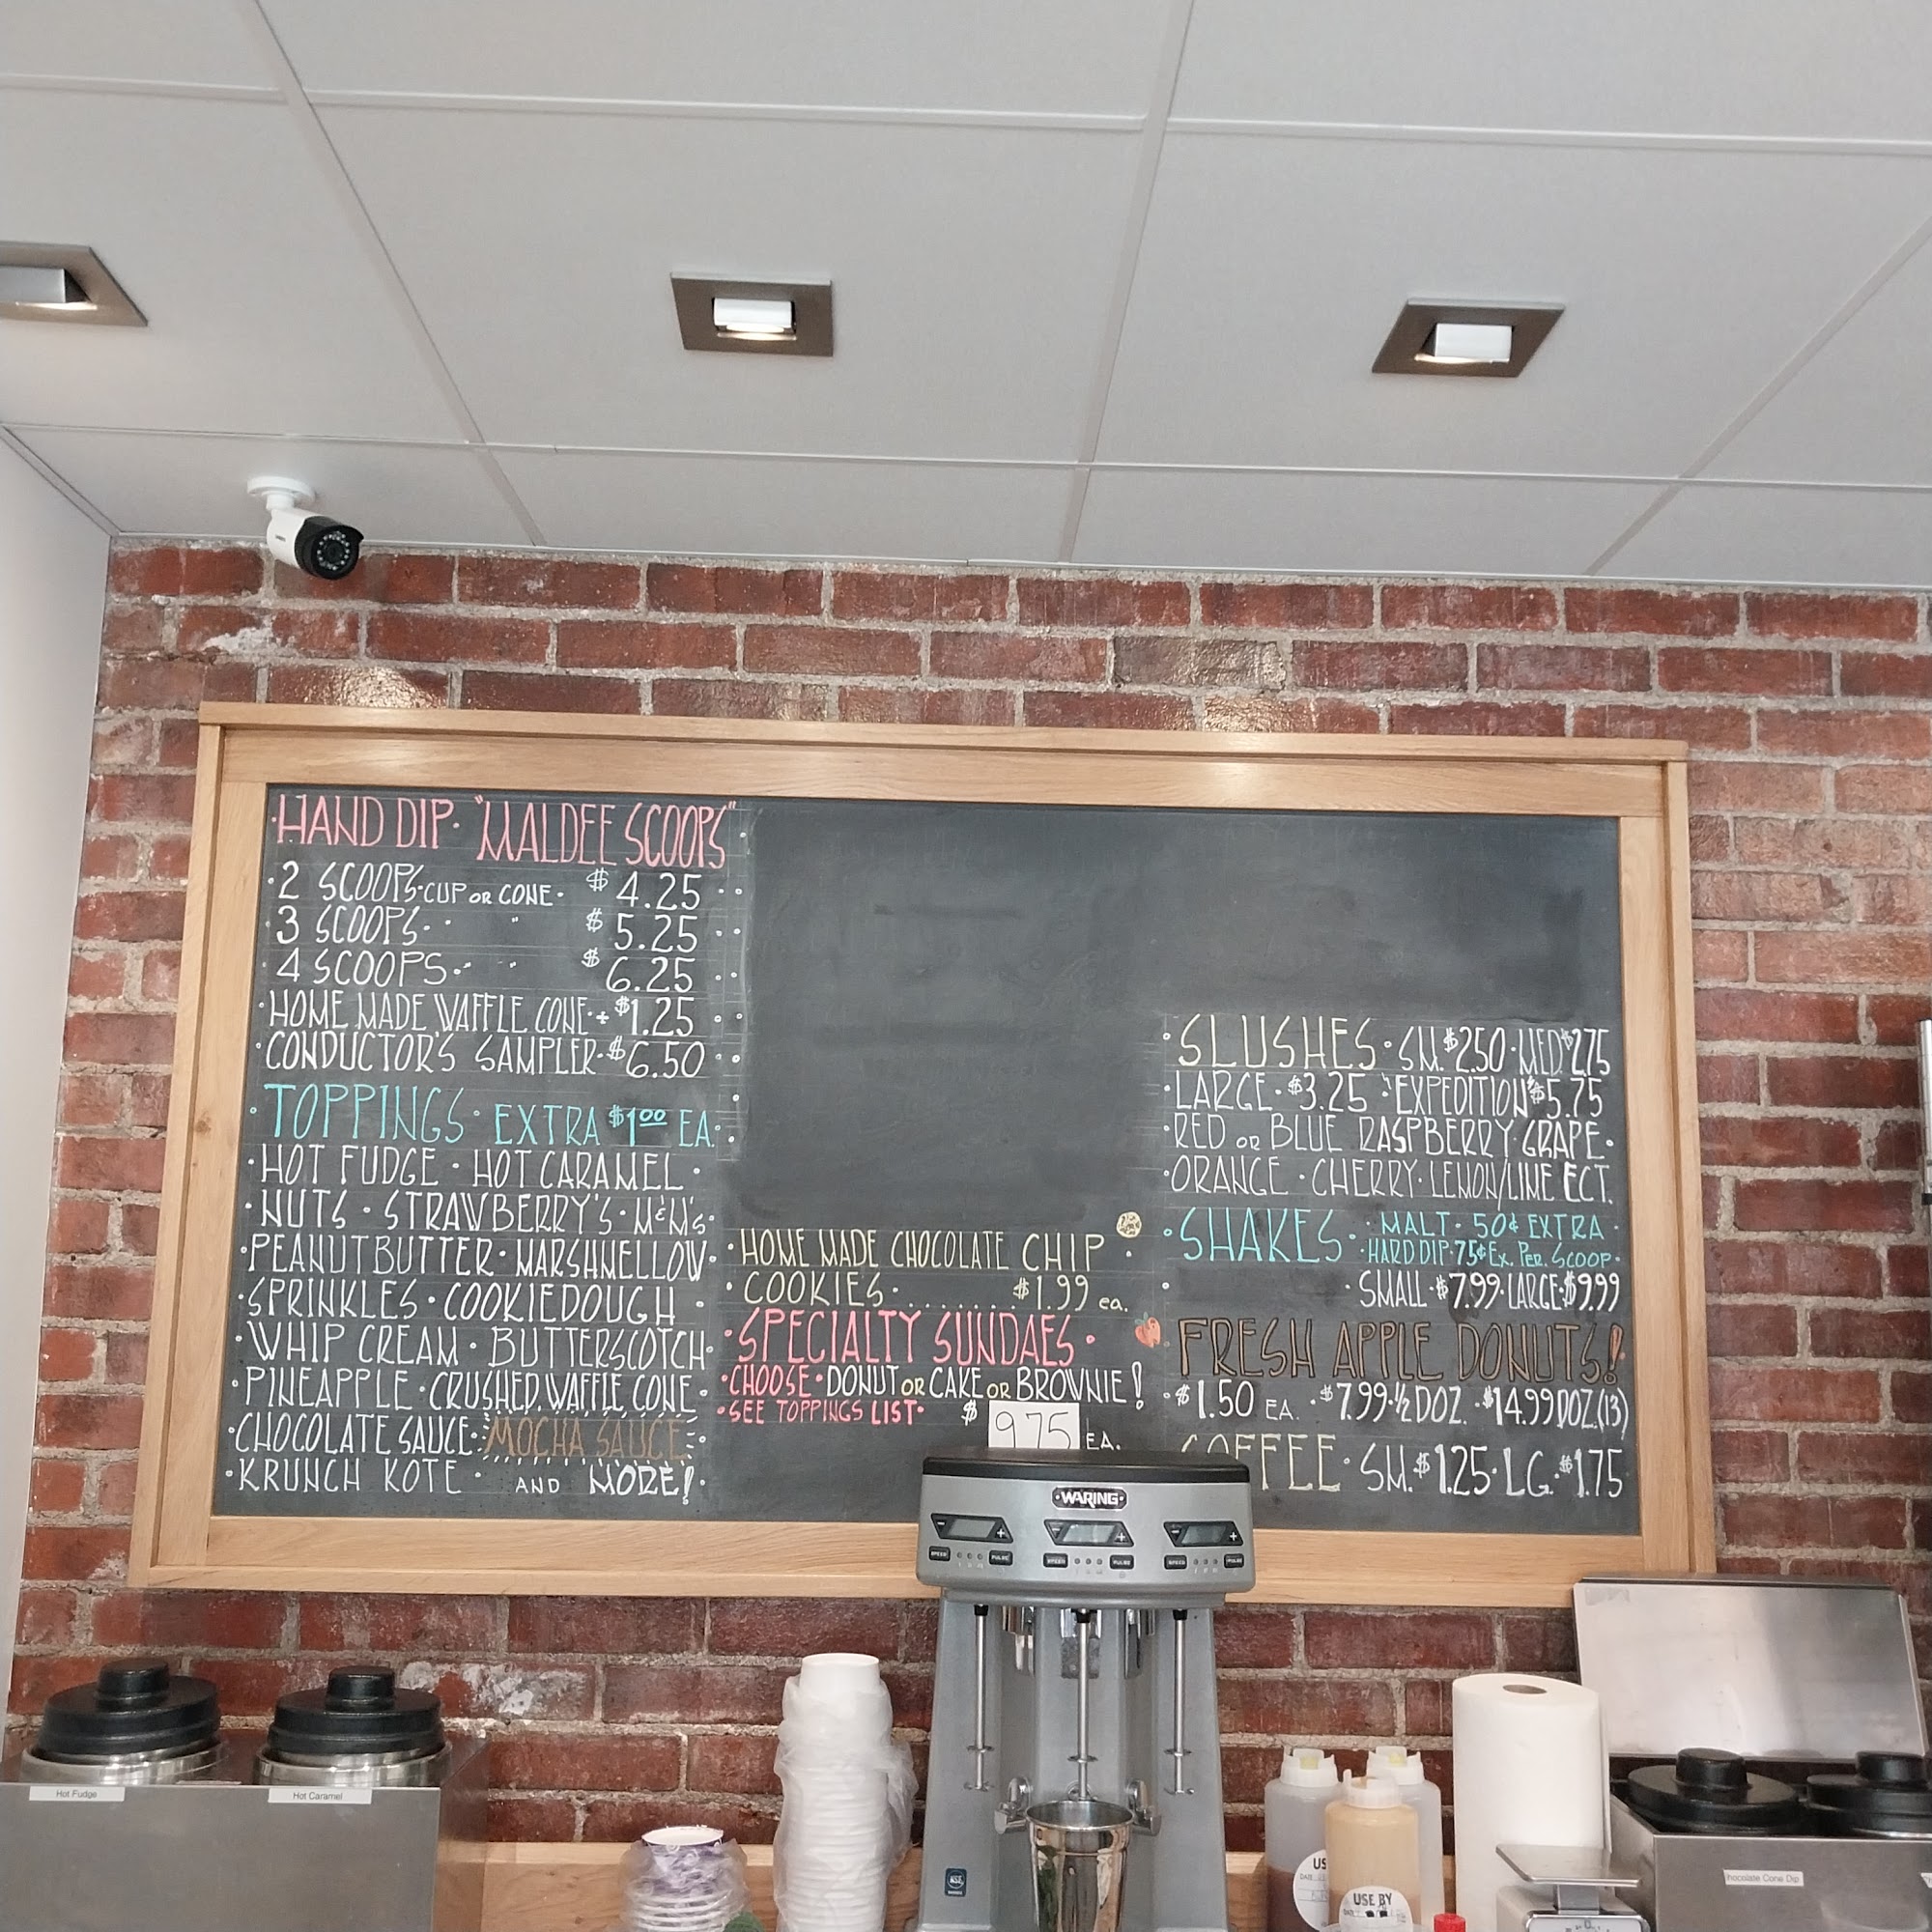 ·HAND DIP· "MALDEE SCOOPS"
·2 SCOOPS·CUP OR CONE· $4.25
·3 SCOOPS·· " $5.25
·4 SCOOPS·· " $6.25
·HOME MADE WAFFLE CONE·+$1.25
·CONDUCTOR'S SAMPLER·$6.50
·TOPPINGS· EXTRA $1.00 EA.
·HOT FUDGE·HOT CARAMEL·
·NUTS·STRAWBERRY'S·M&M's·
·PEANUTBUTTER·MARSHMELLOW·
·SPRINKLES·COOKIEDOUGH·
·WHIP CREAM·BUTTERSCOTCH·
·PINEAPPLE·CRUSHED WAFFLE CONE·
·CHOCOLATE SAUCE·MOCHA SAUCE
·KRUNCH KOTE· AND MORE!·
·HOME MADE CHOCOLATE CHIP·
·COOKIES·.......$1.99 ea.
·SPECIALTY SUNDAES·
·CHOOSE·DONUT OR CAKE OR BROWNIE!
·SEE TOPPINGS LIST· $
975 EA.
·SLUSHES·SM.$2.50·MED.$2.75
·LARGE·$3.25 "EXPEDITION"$5.75
·RED OR BLUE RASPBERRY·GRAPE·
·ORANGE·CHERRY·LEMON/LIME ECT.
·SHAKES· ·MALT·50¢ EXTRA·
·HARD DIP·75¢ Ex. PER. SCOOP·
·SMALL·$7.99·LARGE·$9.99
FRESH APPLE DONUTS!
·$1.50 EA. ·$7.99·½DOZ.·$14.99DOZ.(13)
COFFEE·SM.$1.25·LG.$1.75
WARING
Hot Fudge
Hot Caramel
USE BY
Chocolate Cone Dip